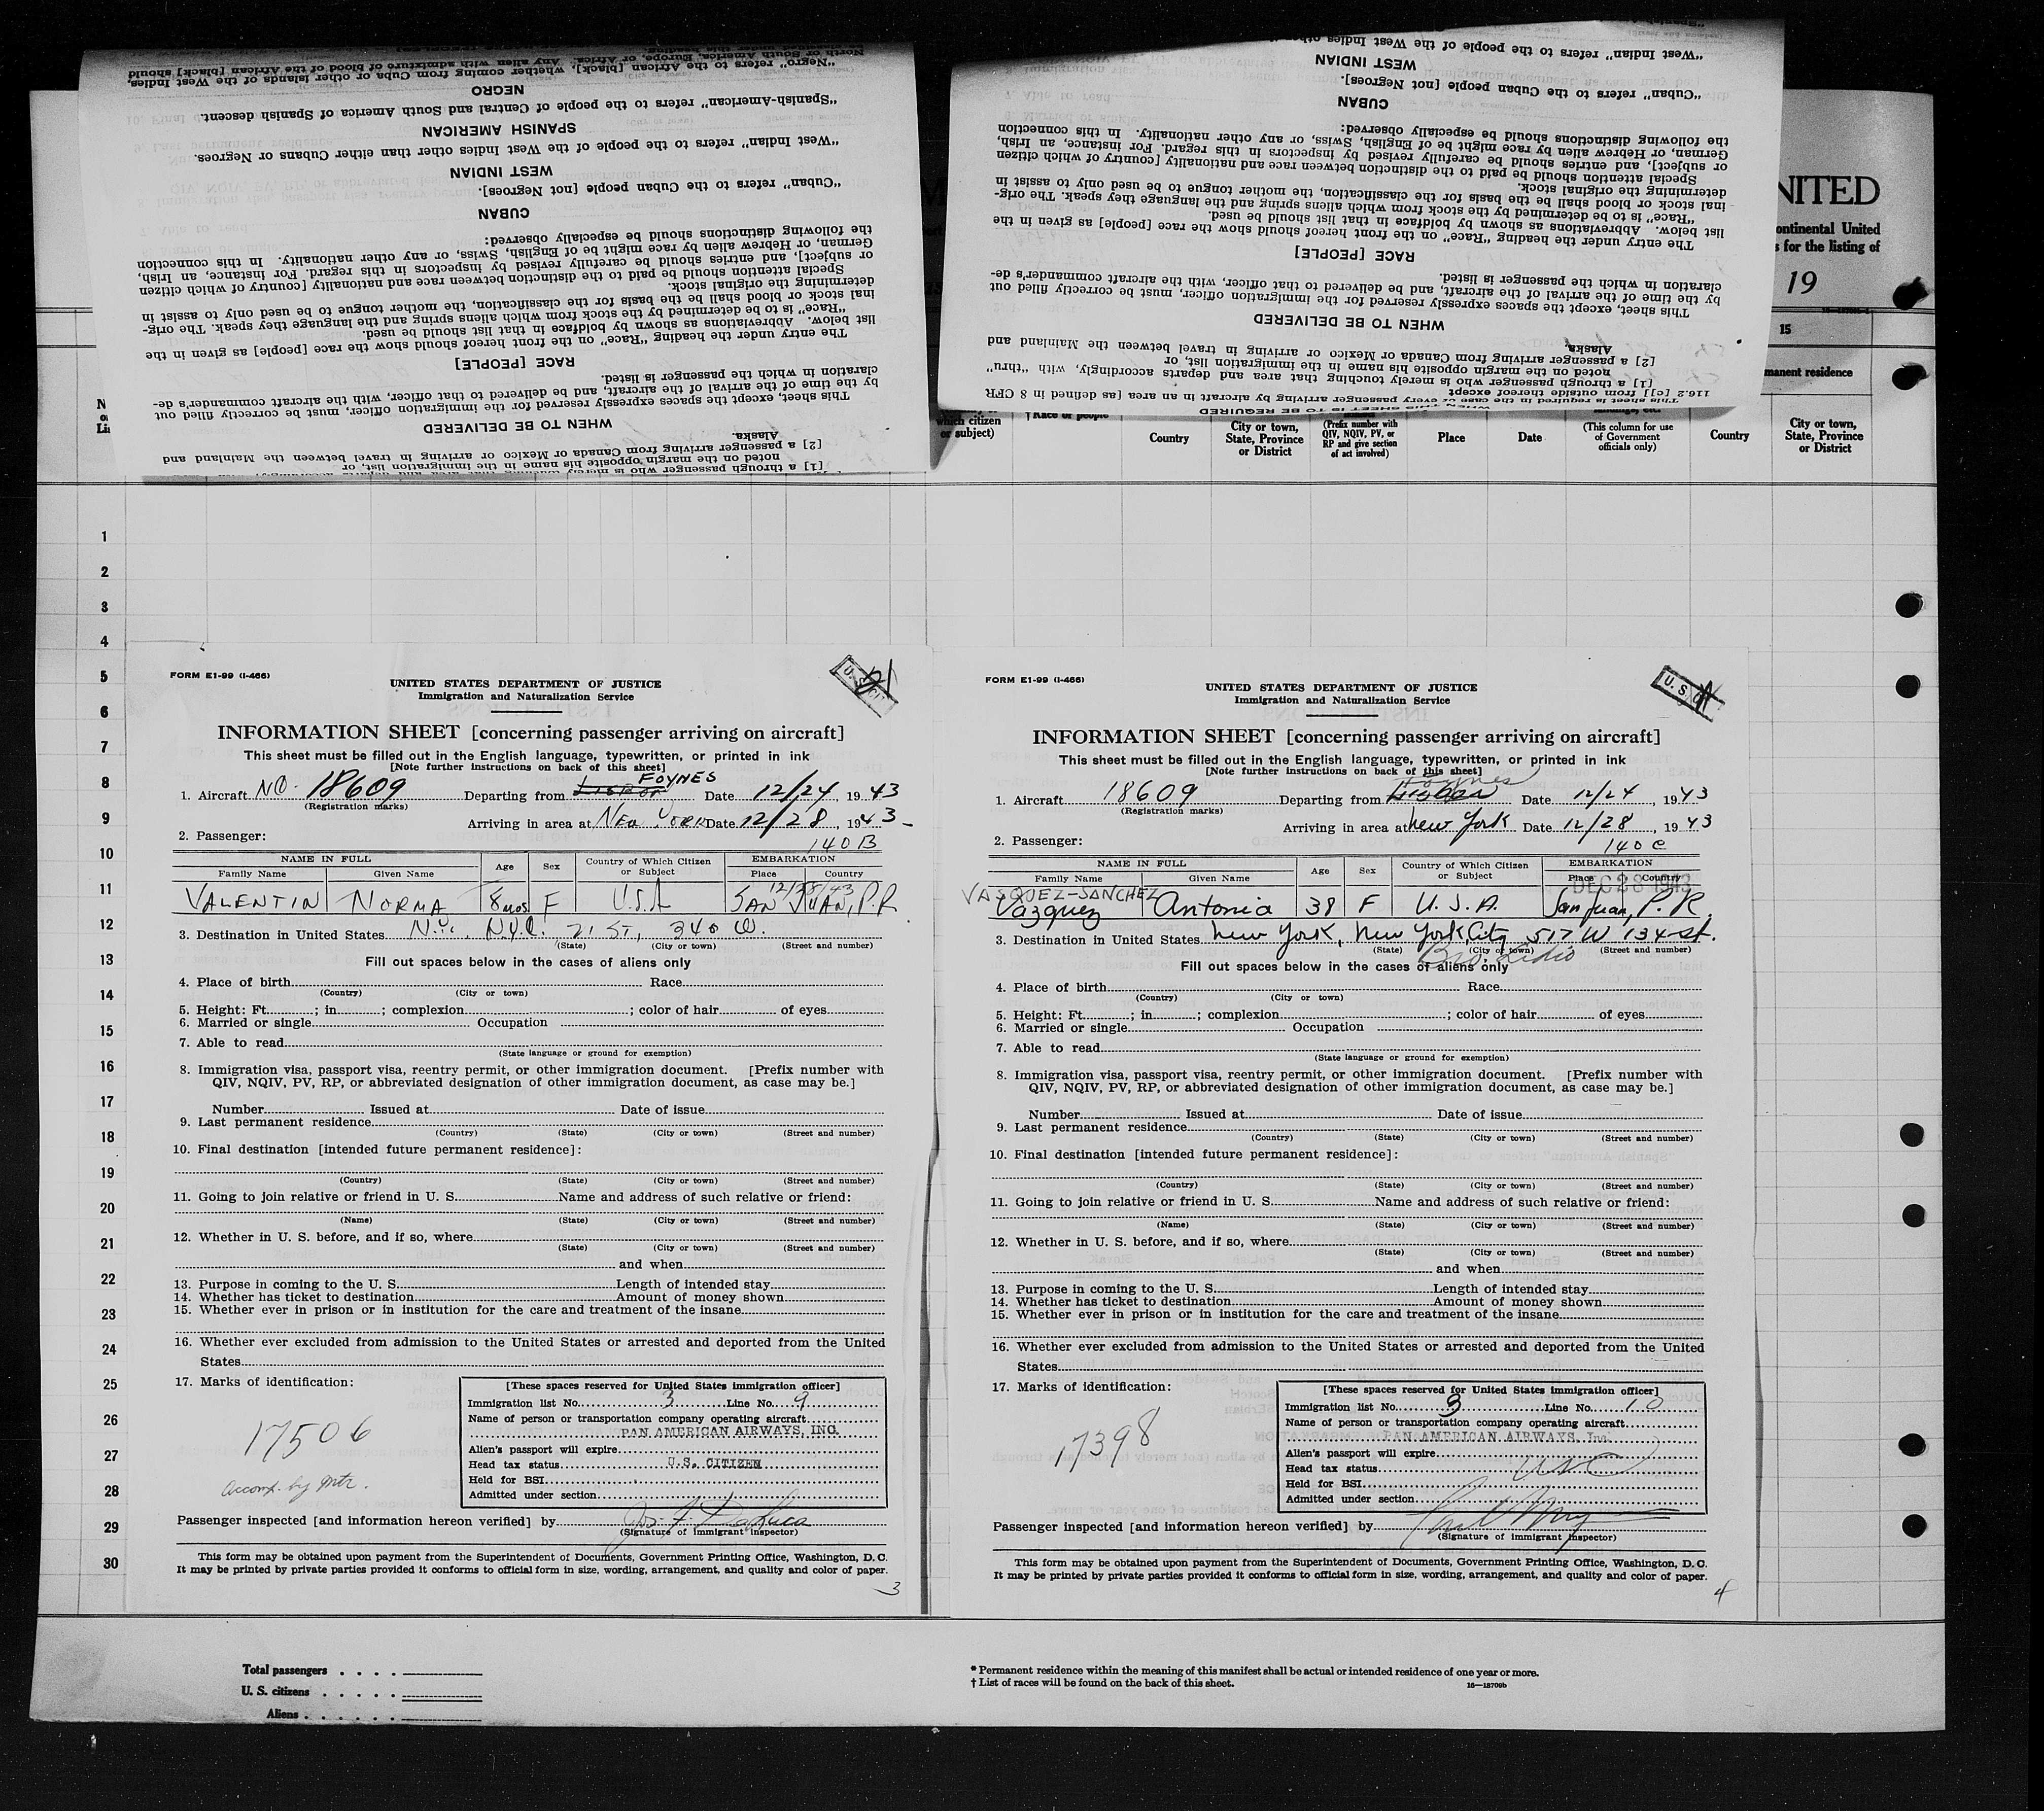 "Negro" refers to the African [black], whether coming from Cuba or other islands of the West Indies,
North or South America, Europe, or Africa. Any alien with admixture of blood of the African [black] should
NEGRO
"Spanish-American" refers to the people of Central and South America of Spanish descent.
SPANISH AMERICAN
"West Indian" refers to the people of the West Indies other than either Cubans or Negroes.
WEST INDIAN
"Cuban" refers to the Cuban people [not Negroes].
CUBAN
the following distinctions should be especially observed:
German, or Hebrew alien by race might be of English, Swiss, or any other nationality. In this connection
or subject], and entries should be carefully revised by inspectors in this regard. For instance, an Irish,
Special attention should be paid to the distinction between race and nationality [country of which citizen
determining the original stock.
inal stock or blood shall be the basis for the classification, the mother tongue to be used only to assist in
"Race" is to be determined by the stock from which aliens spring and the language they speak. The orig-
list below. Abbreviations as shown by boldface in that list should be used.
The entry under the heading "Race" on the front hereof should show the race [people] as given in the
RACE [PEOPLE]
claration in which the passenger is listed.
by the time of the arrival of the aircraft, and be delivered to that officer, with the aircraft commander's de-
This sheet, except the spaces expressly reserved for the immigration officer, must be correctly filled out
WHEN TO BE DELIVERED
Alaska.
[2] a passenger arriving from Canada or Mexico or arriving in travel between the Mainland and
noted on the margin opposite his name in the immigration list, or
[1] a through passenger who is merely touching that area and departs accordingly, with "thru"
"West Indian" refers to the people of the West Indies
WEST INDIAN
"Cuban" refers to the Cuban people [not Negroes].
CUBAN
the following distinctions should be especially observed:
German, or Hebrew alien by race might be of English, Swiss, or any other nationality. In this connection
or subject], and entries should be carefully revised by inspectors in this regard. For instance, an Irish,
Special attention should be paid to the distinction between race and nationality [country of which citizen
determining the original stock.
inal stock or blood shall be the basis for the classification, the mother tongue to be used only to assist in
"Race" is to be determined by the stock from which aliens spring and the language they speak. The orig-
list below. Abbreviations as shown by boldface in that list should be used.
The entry under the heading "Race" on the front hereof should show the race [people] as given in the
RACE [PEOPLE]
claration in which the passenger is listed.
by the time of the arrival of the aircraft, and be delivered to that officer, with the aircraft commander's de-
This sheet, except the spaces expressly reserved for the immigration officer, must be correctly filled out
WHEN TO BE DELIVERED
Alaska.
[2] a passenger arriving from Canada or Mexico or arriving in travel between the Mainland and
noted on the margin opposite his name in the immigration list, or
[1] a through passenger who is merely touching that area and departs accordingly, with "thru"
116.2 [c]] from outside thereof except
This sheet is required in the case of every passenger arriving by aircraft in an area [as defined in 8 CFR
WHEN THIS SHEET IS TO BE REQUIRED
NITED
ontinental United
s for the listing of
19
15
manent residence
which citizen
or subject)
Race or people
Country
City or town,
State, Province
or District
(Prefix number with
QIV, NQIV, PV, or
RP and give section
of act involved)
Place
Date
(This column for use
of Government
officials only)
Country
City or town,
State, Province
or District
1
2
3
4
5
6
7
8
9
10
11
12
13
14
15
16
17
18
19
20
21
22
23
24
25
26
27
28
29
30
FORM E1-99 (I-466)
UNITED STATES DEPARTMENT OF JUSTICE
Immigration and Naturalization Service
INFORMATION SHEET [concerning passenger arriving on aircraft]
This sheet must be filled out in the English language, typewritten, or printed in ink
[Note further instructions on back of this sheet]
1. Aircraft NC. 18609 Departing from Lisbon FOYNES Date 12/24, 1943
(Registration marks)
Arriving in area at NEW YORK Date 12/28, 1943
2. Passenger: 140 B
NAME IN FULL Age Sex Country of Which Citizen or Subject EMBARKATION
Family Name Given Name Place Country
12/28/43
VALENTIN NORMA 8 mos F U.S.A SAN JUAN, P.R.
3. Destination in United States N.Y. N.Y.C. 21 ST, 340 W.
(State) (City or town) (Street and number)
Fill out spaces below in the cases of aliens only
4. Place of birth Race
(Country) (City or town)
5. Height: Ft. ; in ; complexion ; color of hair of eyes
6. Married or single Occupation
7. Able to read
(State language or ground for exemption)
8. Immigration visa, passport visa, reentry permit, or other immigration document. [Prefix number with
QIV, NQIV, PV, RP, or abbreviated designation of other immigration document, as case may be.]
Number Issued at Date of issue
9. Last permanent residence
(Country) (State) (City or town) (Street and number)
10. Final destination [intended future permanent residence]:
(Country) (State) (City or town) (Street and number)
11. Going to join relative or friend in U. S. Name and address of such relative or friend:
(Name) (State) (City or town) (Street and number)
12. Whether in U. S. before, and if so, where
(State) (City or town) (Street and number)
and when
13. Purpose in coming to the U. S. Length of intended stay
14. Whether has ticket to destination Amount of money shown
15. Whether ever in prison or in institution for the care and treatment of the insane
16. Whether ever excluded from admission to the United States or arrested and deported from the United
States
17. Marks of identification:
17506
Accomp. by Mtr.
[These spaces reserved for United States immigration officer]
Immigration list No. 3 Line No. 9
Name of person or transportation company operating aircraft
PAN AMERICAN AIRWAYS, INC.
Alien's passport will expire
Head tax status U.S. CITIZEN
Held for BSI
Admitted under section
Passenger inspected [and information hereon verified] by
(Signature of immigrant inspector)
This form may be obtained upon payment from the Superintendent of Documents, Government Printing Office, Washington, D. C.
It may be printed by private parties provided it conforms to official form in size, wording, arrangement, and quality and color of paper.
3
FORM E1-99 (I-466)
U. S. C.
UNITED STATES DEPARTMENT OF JUSTICE
Immigration and Naturalization Service
INFORMATION SHEET [concerning passenger arriving on aircraft]
This sheet must be filled out in the English language, typewritten, or printed in ink
[Note further instructions on back of this sheet]
1. Aircraft 18609 Departing from Lisbon Foynes Date 12/24 1943
(Registration marks)
Arriving in area at New York Date 12/28, 1943
2. Passenger: 140 C
NAME IN FULL Age Sex Country of Which Citizen or Subject EMBARKATION
Family Name Given Name Place Country
DEC 28 1943
VASQUEZ-SANCHEZ
Vazquez Antonia 38 F U.S.A. San Juan, P.R.
3. Destination in United States New York, New York City 517 W 134 St.
(State) (City or town) (Street and number)
Fill out spaces below in the cases of aliens only
4. Place of birth Race
(Country) (City or town)
5. Height: Ft. ; in ; complexion ; color of hair of eyes
6. Married or single Occupation
7. Able to read
(State language or ground for exemption)
8. Immigration visa, passport visa, reentry permit, or other immigration document. [Prefix number with
QIV, NQIV, PV, RP, or abbreviated designation of other immigration document, as case may be.]
Number Issued at Date of issue
9. Last permanent residence
(Country) (State) (City or town) (Street and number)
10. Final destination [intended future permanent residence]:
(Country) (State) (City or town) (Street and number)
11. Going to join relative or friend in U. S. Name and address of such relative or friend:
(Name) (State) (City or town) (Street and number)
12. Whether in U. S. before, and if so, where
(State) (City or town) (Street and number)
and when
13. Purpose in coming to the U. S. Length of intended stay
14. Whether has ticket to destination Amount of money shown
15. Whether ever in prison or in institution for the care and treatment of the insane
16. Whether ever excluded from admission to the United States or arrested and deported from the United
States
17. Marks of identification:
17398
[These spaces reserved for United States immigration officer]
Immigration list No. 3 Line No. 10
Name of person or transportation company operating aircraft
PAN AMERICAN AIRWAYS, Inc.
Alien's passport will expire
Head tax status USC
Held for BSI
Admitted under section
Passenger inspected [and information hereon verified] by
(Signature of immigrant inspector)
This form may be obtained upon payment from the Superintendent of Documents, Government Printing Office, Washington, D. C.
It may be printed by private parties provided it conforms to official form in size, wording, arrangement, and quality and color of paper.
4
Total passengers
U. S. citizens
Aliens
* Permanent residence within the meaning of this manifest shall be actual or intended residence of one year or more.
† List of races will be found on the back of this sheet.
16—18709b